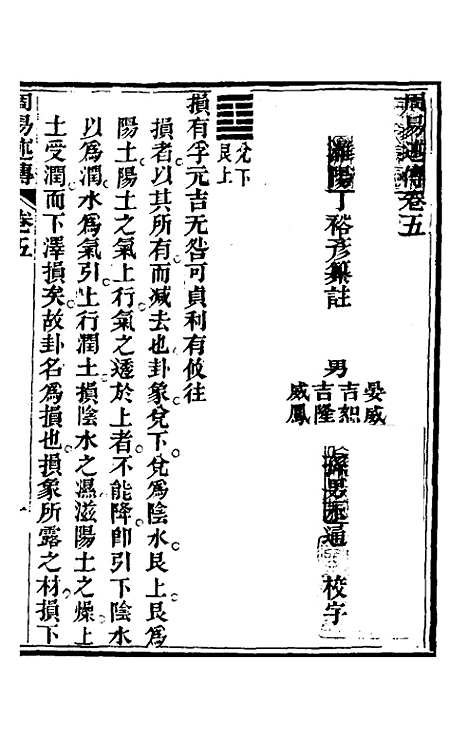 周易述傳卷五
淮陽丁裕彥纂註
男
晏威
吉恕
吉隆
威鳳
校字
兌下
艮上
損有孚元吉无咎可貞利有攸往
損者以其所有而減去也卦象兌下兌爲陰水艮上艮爲
陽土陽土之氣上行氣之透於上者不能降卽引下陰水
以爲潤水爲氣引上行潤土損陰水之濕滋陽土之燥上
土受潤而下澤損矣故卦名爲損也損象所露之材損下
周易述傳
卷五
一